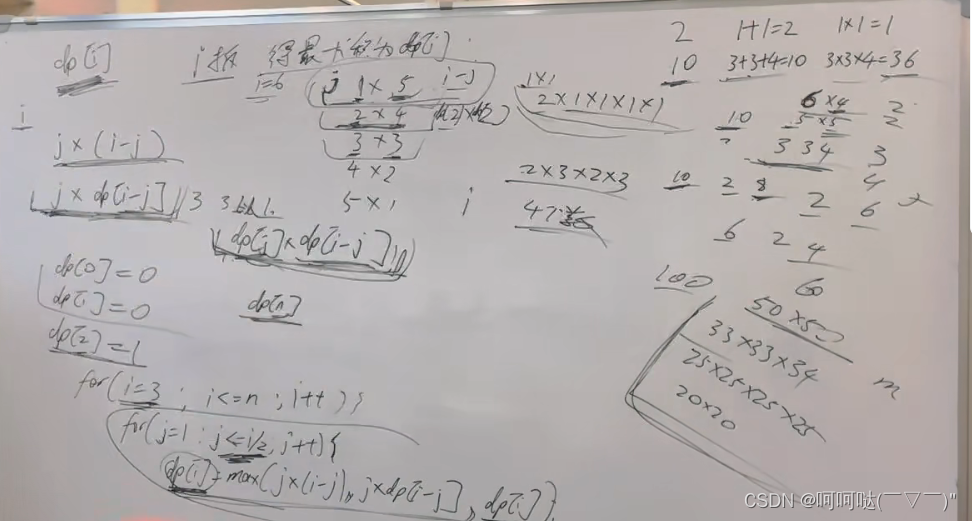 dp[i]
i拆 得最大积为dp[i].
i=6
j 1×5 i-j
2×4
3×3
4×2
5×1
i
j×(i-j)
j×dp[i-j]
3
dp[j]×dp[i-j]
dp[0]=0
dp[1]=0
dp[2]=1
dp[n]
for(i=3; i<=n; i++){
for(j=1; j<=i/2, j++){
dp[i]=max(j×(i-j), j×dp[i-j], dp[i]);
1×1
2×1×1×1×1
2×3×2×3
i
2 1+1=2 1×1=1
10 3+3+4=10 3×3×4=36
6×4 2
10 5×5 2
3 3 4 3
4
10 2 8 2 6
6 2 4
6
100 50×50
33×33×34
25×25×25×25
20×20
m
CSDN @呵呵哒(￣▽￣)"